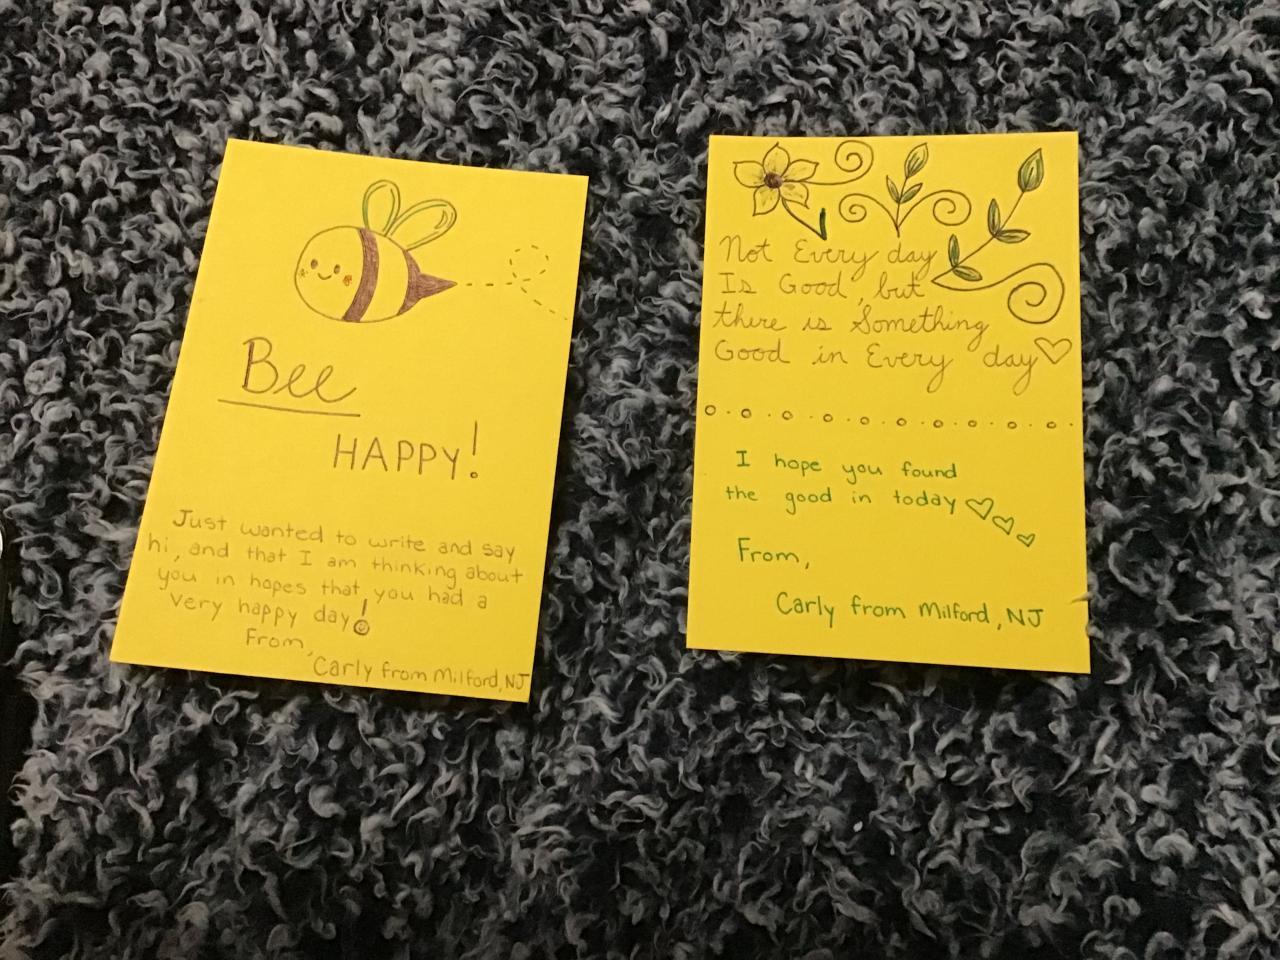 Bee
HAPPY!
Just wanted to write and say
hi, and that I am thinking about
you in hopes that you had a
very happy day!
From,
Carly from Milford, NJ
Not Every day
Is Good, but
there is Something
Good in Every day
I hope you found
the good in today
From,
Carly from Milford, NJ